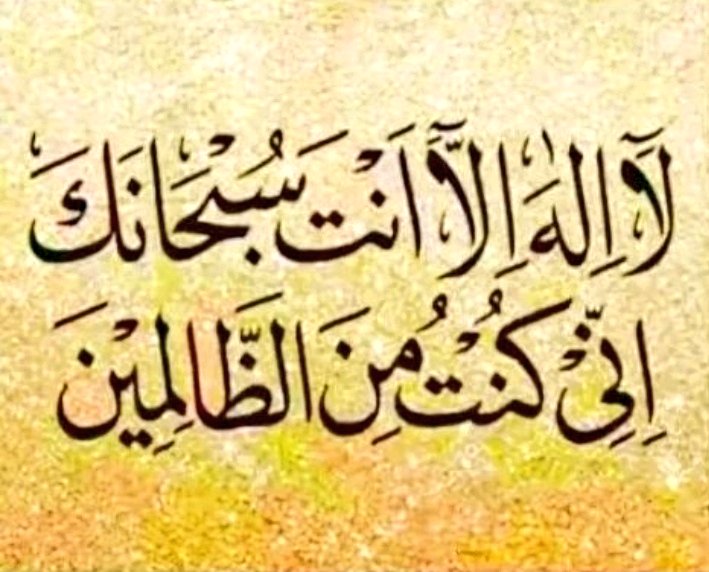 لَآ اِلٰهَ اِلَّآ اَنْتَ سُبْحَانَكَ
اِنِّيْ كُنْتُ مِنَ الظَّالِمِيْنَ